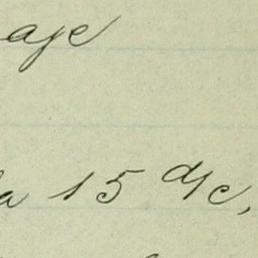 aje
a 15 d/c,